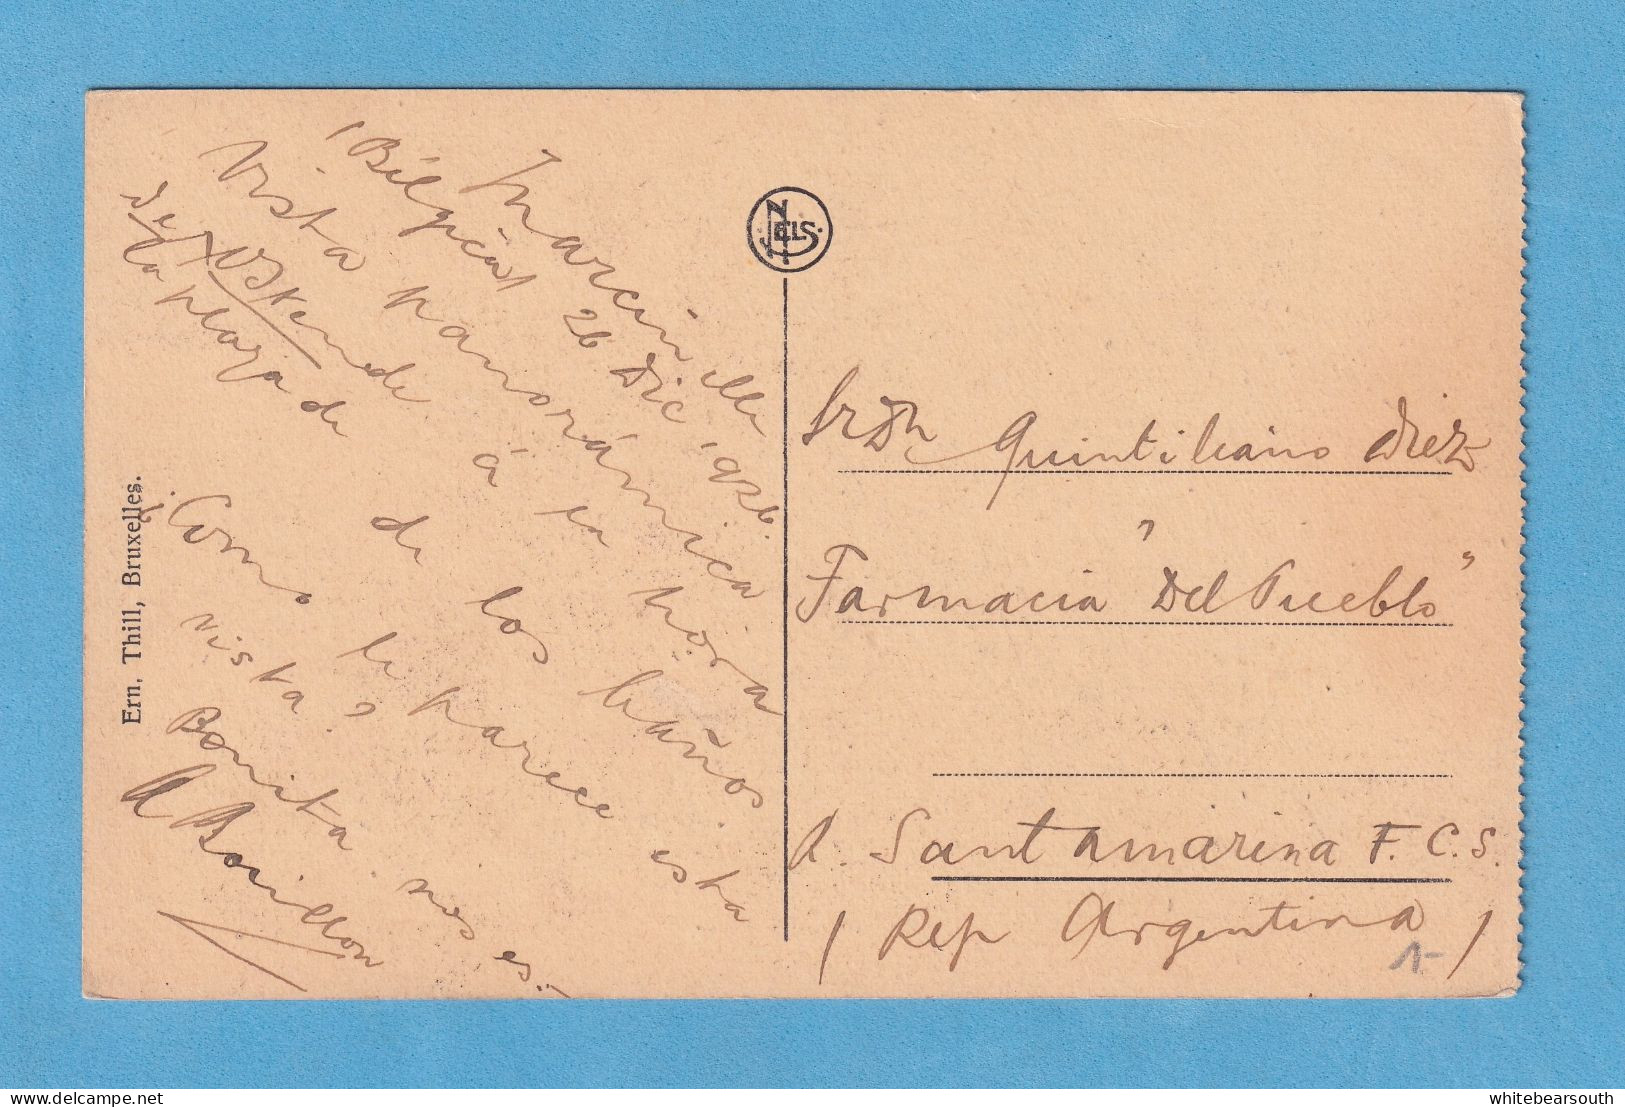 Marcinelle
(Bélgica) 26 Dic 1926.
Vista panorámica
de la playa de
Ostende á la hora
de los baños
¿Como le parece esta
vista?
Bonita no es.
A Bouillon
Ern. Thill, Bruxelles.
NELS
Sr Dn Quintiliano Diez
Farmacia "Del Pueblo"
A. Santamarina F.C.S.
(Rep Argentina)
1-
whitebearsouth